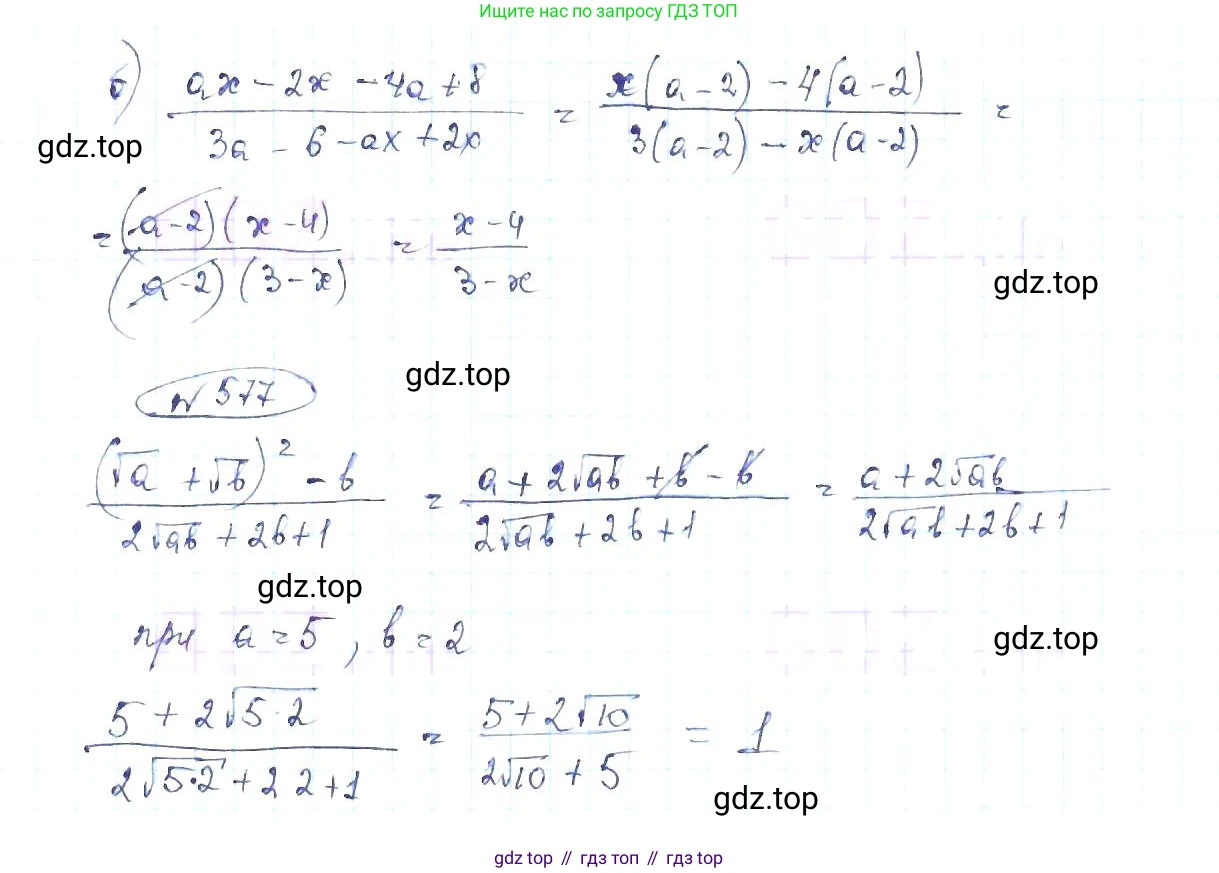 Ищите нас по запросу ГДЗ ТОП
б) (ax - 2x - 4a + 8)/(3a - 6 - ax + 2x) = (x(a - 2) - 4(a - 2))/(3(a - 2) - x(a - 2)) =
gdz.top
= ((a - 2)(x - 4))/((a - 2)(3 - x)) = (x - 4)/(3 - x)
gdz.top
gdz.top
№ 577
((√a + √b)² - b)/(2√ab + 2b + 1) = (a + 2√ab + b - b)/(2√ab + 2b + 1) = (a + 2√ab)/(2√ab + 2b + 1)
gdz.top
при a = 5, b = 2
gdz.top
(5 + 2√5·2)/(2√5·2 + 2 2 + 1) = (5 + 2√10)/(2√10 + 5) = 1
gdz.top
gdz top // гдз топ // gdz top